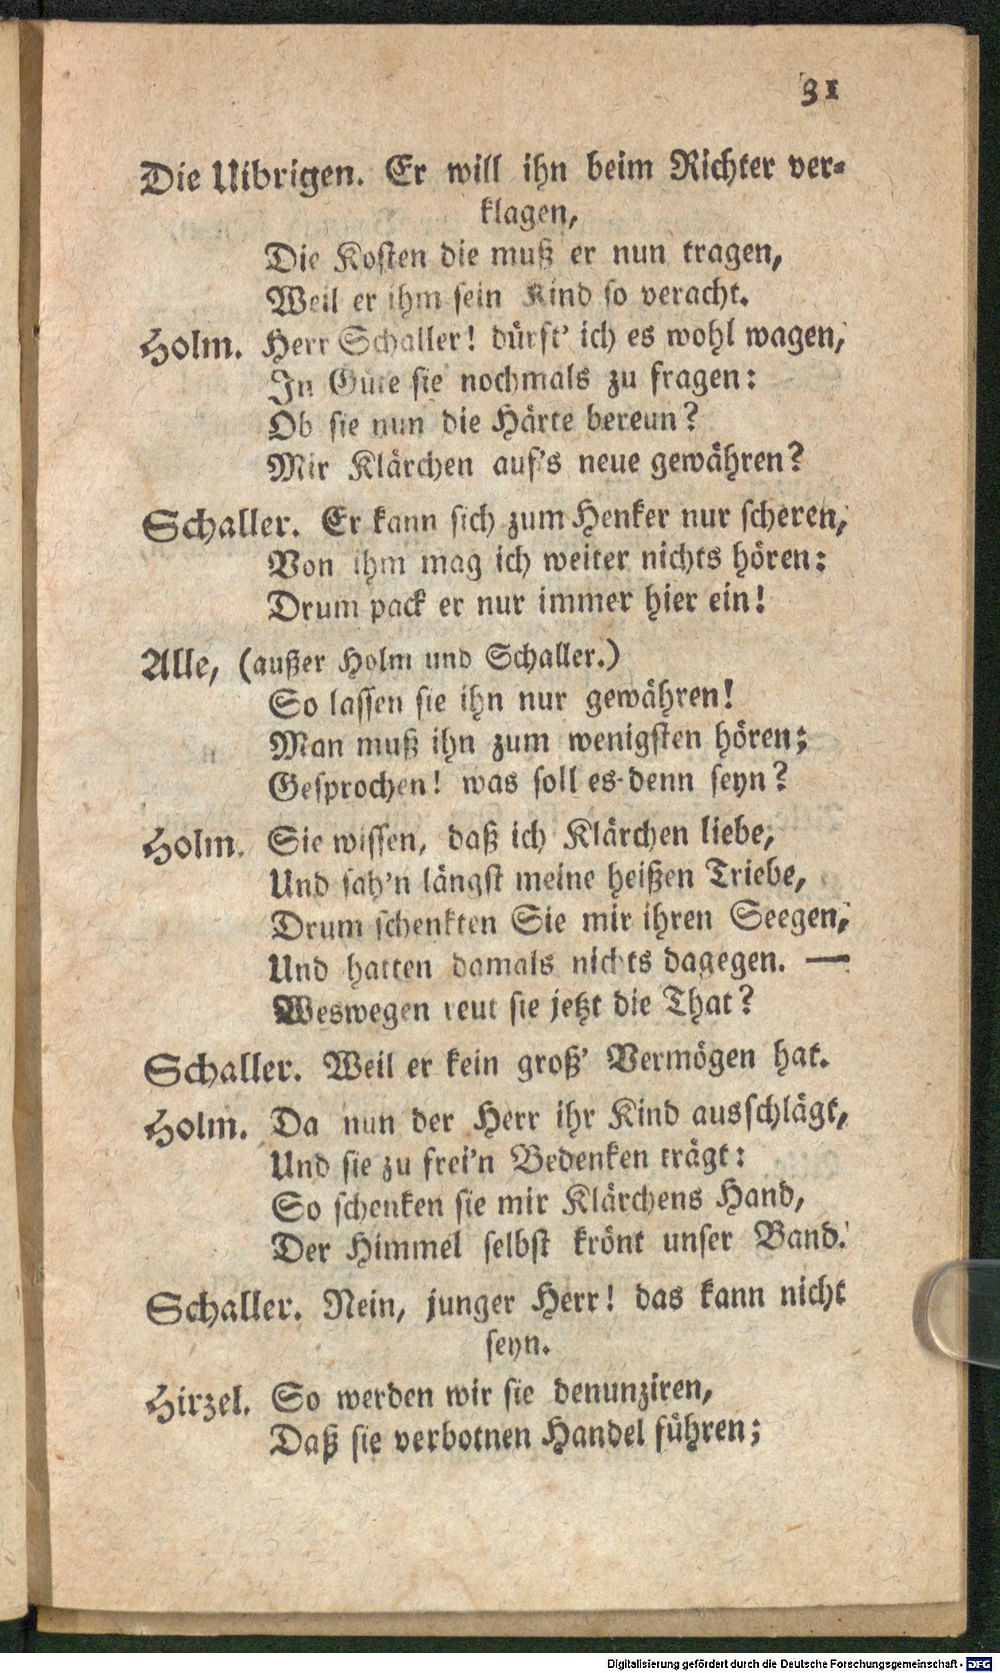 31
Die Uibrigen. Er will ihn beim Richter ver-
klagen,
Die Kosten die muß er nun tragen,
Weil er ihm sein Kind so veracht.
Holm. Herr Schaller! dürft' ich es wohl wagen,
In Güte sie nochmals zu fragen:
Ob sie nun die Härte bereun?
Mir Klärchen auf's neue gewähren?
Schaller. Er kann sich zum Henker nur scheren,
Von ihm mag ich weiter nichts hören:
Drum pack er nur immer hier ein!
Alle, (außer Holm und Schaller.)
So lassen sie ihn nur gewähren!
Man muß ihn zum wenigsten hören;
Gesprochen! was soll es denn seyn?
Holm. Sie wissen, daß ich Klärchen liebe,
Und sah'n längst meine heißen Triebe,
Drum schenkten Sie mir ihren Seegen,
Und hatten damals nichts dagegen. —
Weswegen reut sie jetzt die That?
Schaller. Weil er kein groß' Vermögen hat.
Holm. Da nun der Herr ihr Kind ausschlägt,
Und sie zu frei'n Bedenken trägt:
So schenken sie mir Klärchens Hand,
Der Himmel selbst krönt unser Band.
Schaller. Nein, junger Herr! das kann nicht
seyn.
Hirzel. So werden wir sie denunziren,
Daß sie verbotnen Handel führen;
Digitalisierung gefördert durch die Deutsche Forschungsgemeinschaft - DFG